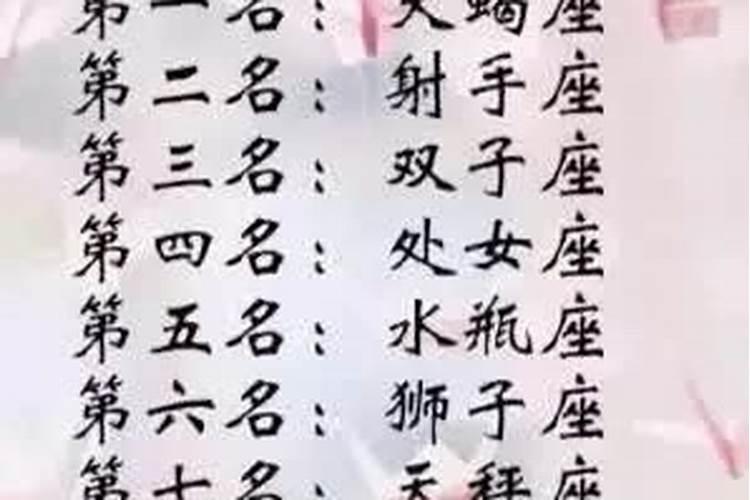 第一名：天蝎座
第二名：射手座
第三名：双子座
第四名：处女座
第五名：水瓶座
第六名：狮子座
第七名：天秤座